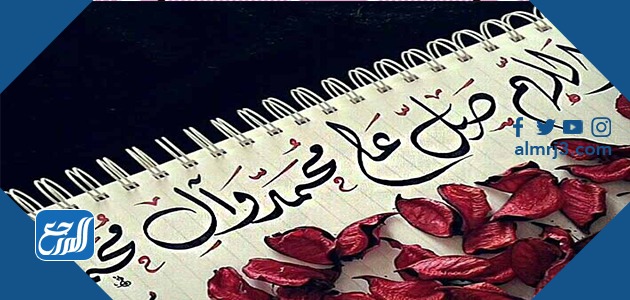 اللهم صل على محمد وآل محمد
almrj3.com
المرجع